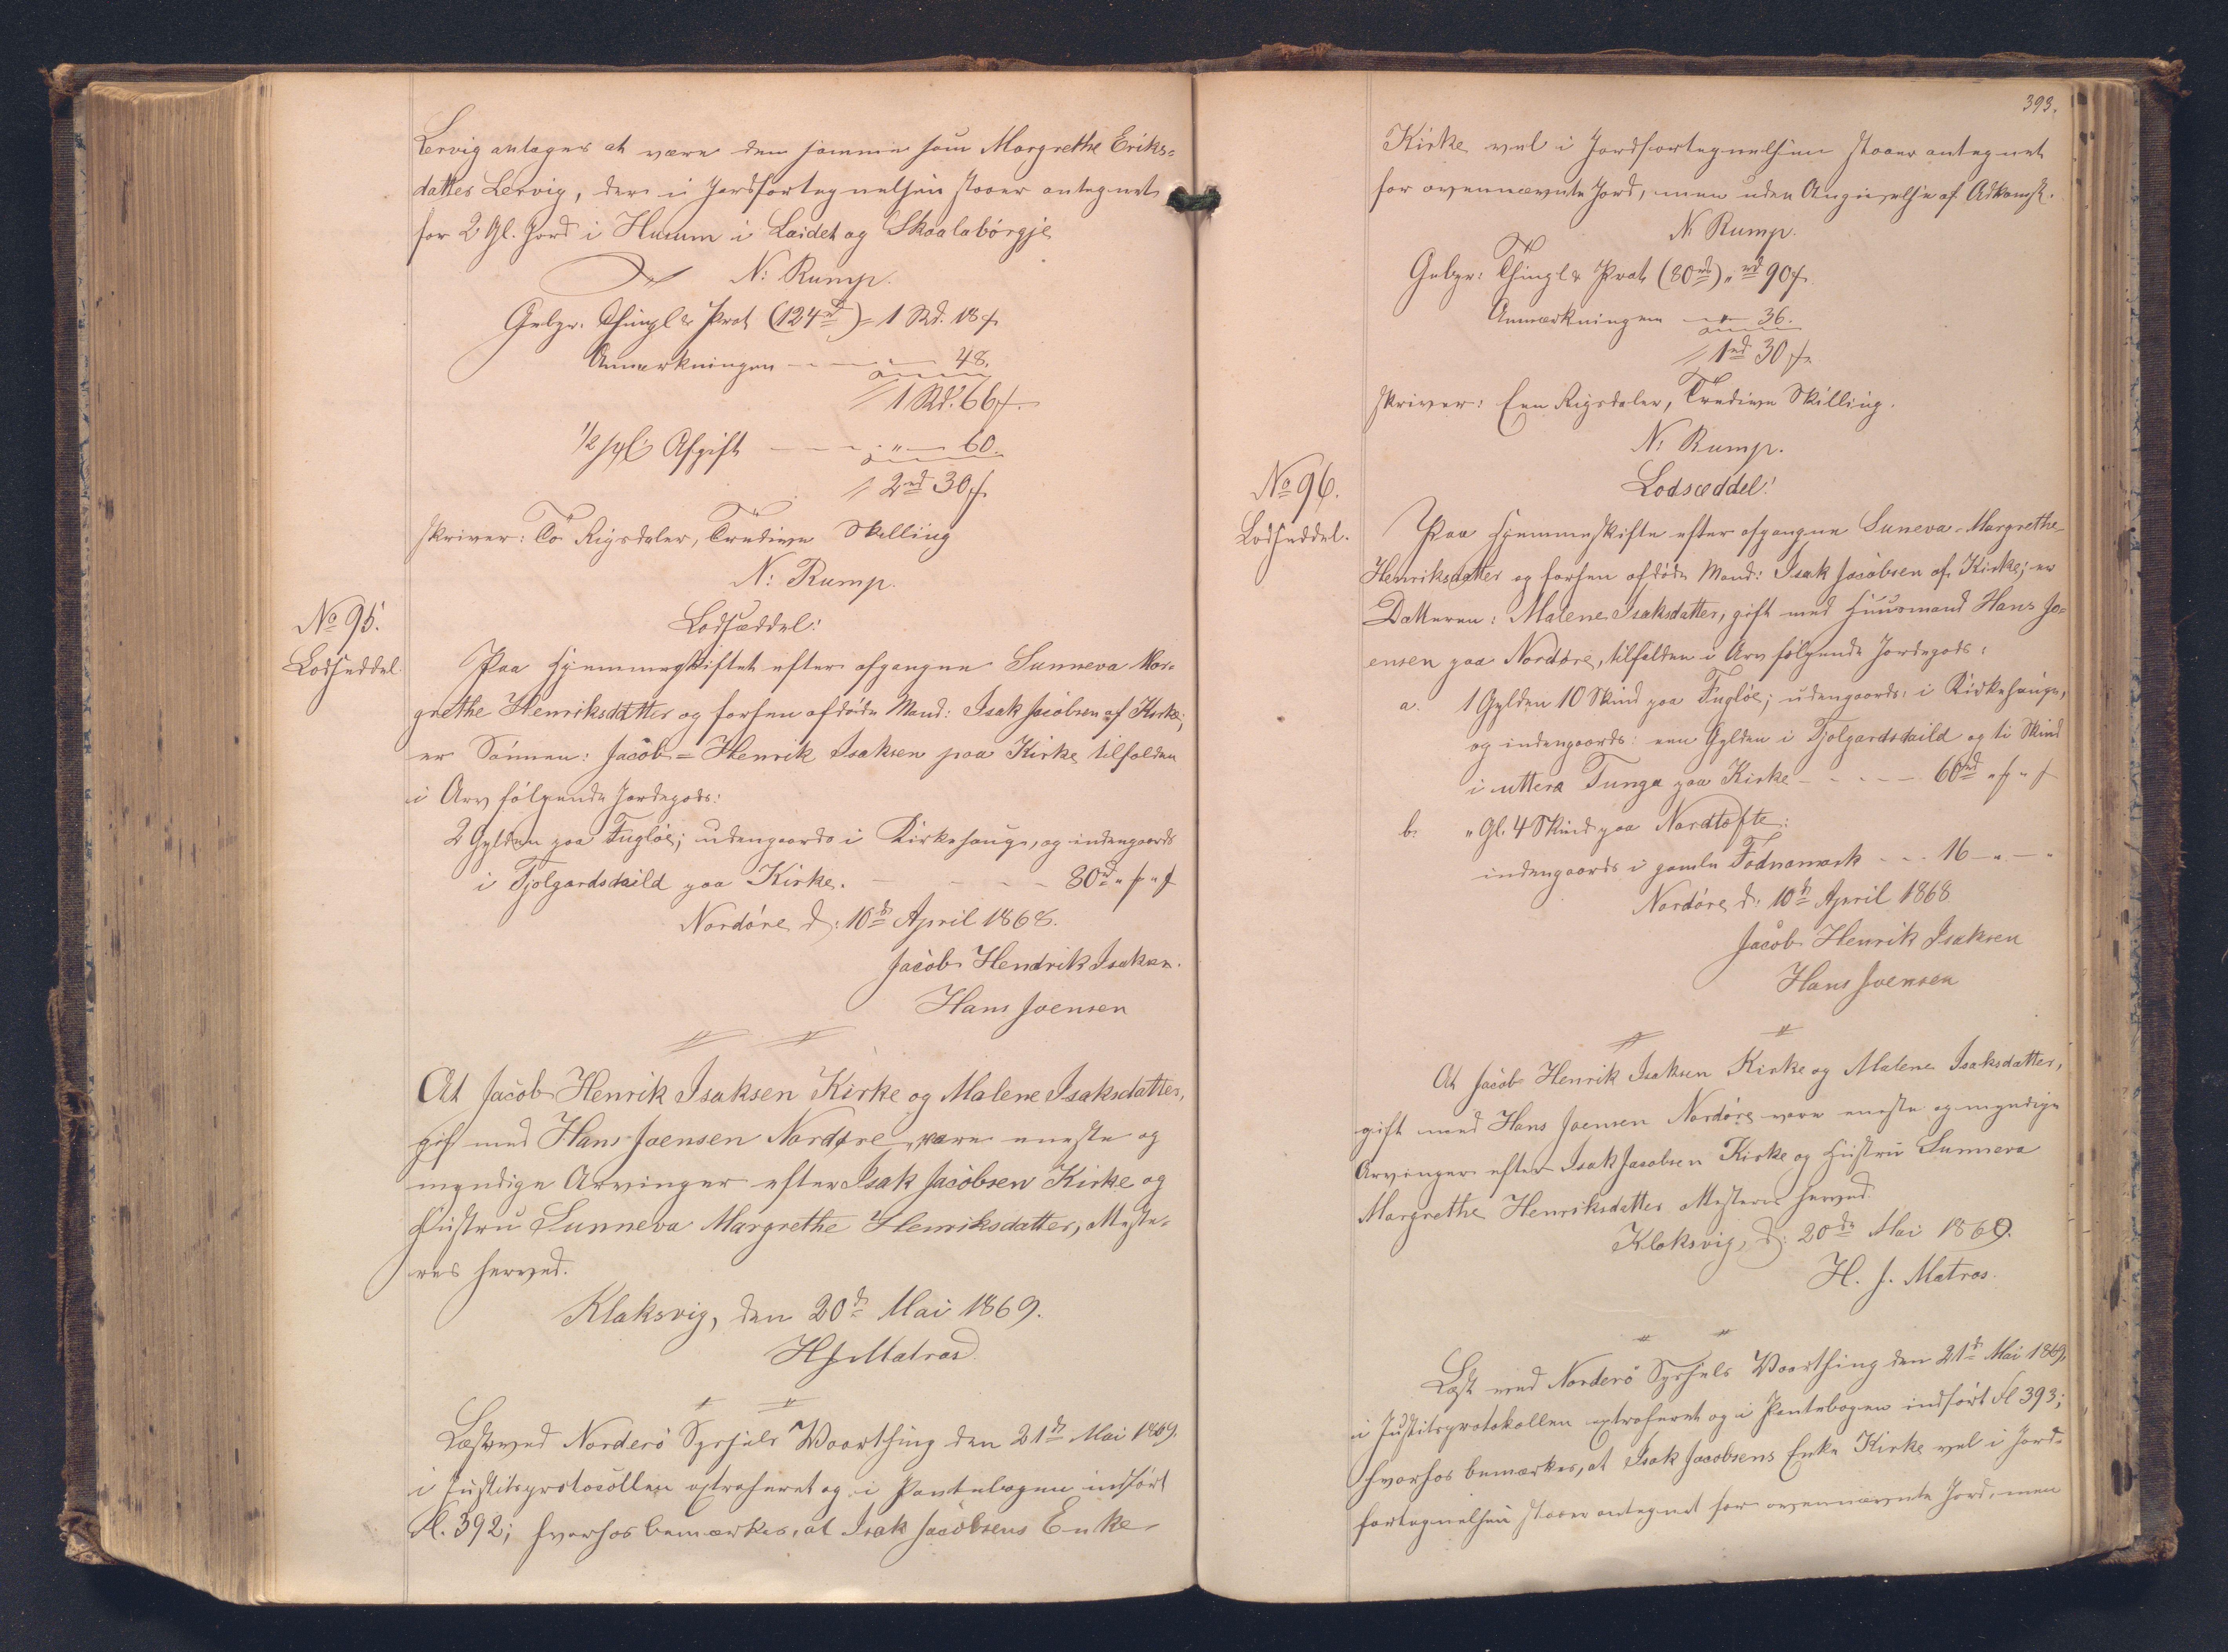 Lervig antages at være den samme som Margrethe Eriks-
datter Lervig, der i Jordfortegnelsen staaer antegnet
for 2 Gl. Jord i Humm i Laidet og Skaalabørgje
N: Rump.
Gebyr. Thingl & Prot (124rd) = 1 Rd. 18 s
Anmærkningen 48.
1 Rd. 66 s.
1/2 pCt Afgift " 60.
2rd 30 s.
skriver: To Rigsdaler, Tredive Skilling
N: Rump.
No 95.
Lodseddel.
Lodseddel:
Paa Hjemmeskiftet efter afgangne Sunneva Mar-
grethe Henriksdatter og forhen afdøde Mand: Isak Jacobsen af Kirke;
er Sønnen: Jacob=Henrik Isaksen paa Kirke tilfalden
i Arv følgende Jordegods:
2 Gylden paa Fugløe; udengaards i Kirkehauge, og indengaards
i Tjolgardsdaild paa Kirke. 80rd " s " s
Nordøre d: 10de April 1868.
Jacob Hendrik Isaksen.
Hans Joensen
At Jacob Henrik Isaksen Kirke og Malene Isaksdatter,
gift med Hans Joensen Nordøre, ere eneste og
myndige Arvinger efter Isak Jacobsen Kirke og
Hustru Sunneva Margrethe Henriksdatter, Atteste-
res herved.
Klaksvig, den 20de Mai 1869.
HJMatras
Læst ved Norderø Syssels Vaarthing den 21de Mai 1869,
i Justitsprotocollen extraheret og i Pantebogen indført
Fl. 392; hvorhos bemærkes, at Isak Jacobsens Enke
393.
Kirke vel i Jordfortegnelsen staaer antegnet
for ovennævnte Jord, men uden Angivelse af Adkomst.
N: Rump.
Gebyr: Thingl & Prot (80rd) " rd 90 s
Anmærkningen " 36.
1rd 30 s.
skriver: Een Rigsdaler, Tredive Skilling.
N: Rump.
No 96.
Lodseddel.
Lodsæddel:
Paa Hjemmeskifte efter afgangne Suneva-Margrethe
Henriksdatter og forhen afdøde Mand: Isak Jacobsen af Kirke; er
Datteren: Malene Isaksdatter, gift med Huusmand Hans Jo-
ensen paa Nordøre, tilfalden i Arv følgende Jordegods:
a. 1 Gylden 10 Skind paa Fugløe; udengaards: i Kirkehauge,
og indengaards: een Gylden i Tjolgardsdaild og ti Skind
i uttera Tunga paa Kirke 60rd " s " s
b. " Gl. 4 Skind paa Nordtofte:
indengaards i gamle Todnamark 16 " "
Nordøre d: 10de April 1868
Jacob Henrik Isaksen
Hans Joensen
At Jacob Henrik Isaksen Kirke og Malene Isaksdatter,
gift med Hans Joensen Nordøre vare eneste og myndige
Arvinger efter Isak Jacobsen Kirke og Hustru Sunneva
Margrethe Henriksdatter Attesteres herved.
Klaksvig, d: 20de Mai 1869.
H. J. Matras.
Læst ved Norderø Syssels Vaarthing den 21de Mai 1869,
i Justitsprotokollen extraheret og i Pantebogen indført Fl 393;
hvorhos bemærkes, at Isak Jacobsens Enke Kirke vel i Jord-
fortegnelsen staaer antegnet for ovennævnte Jord, men